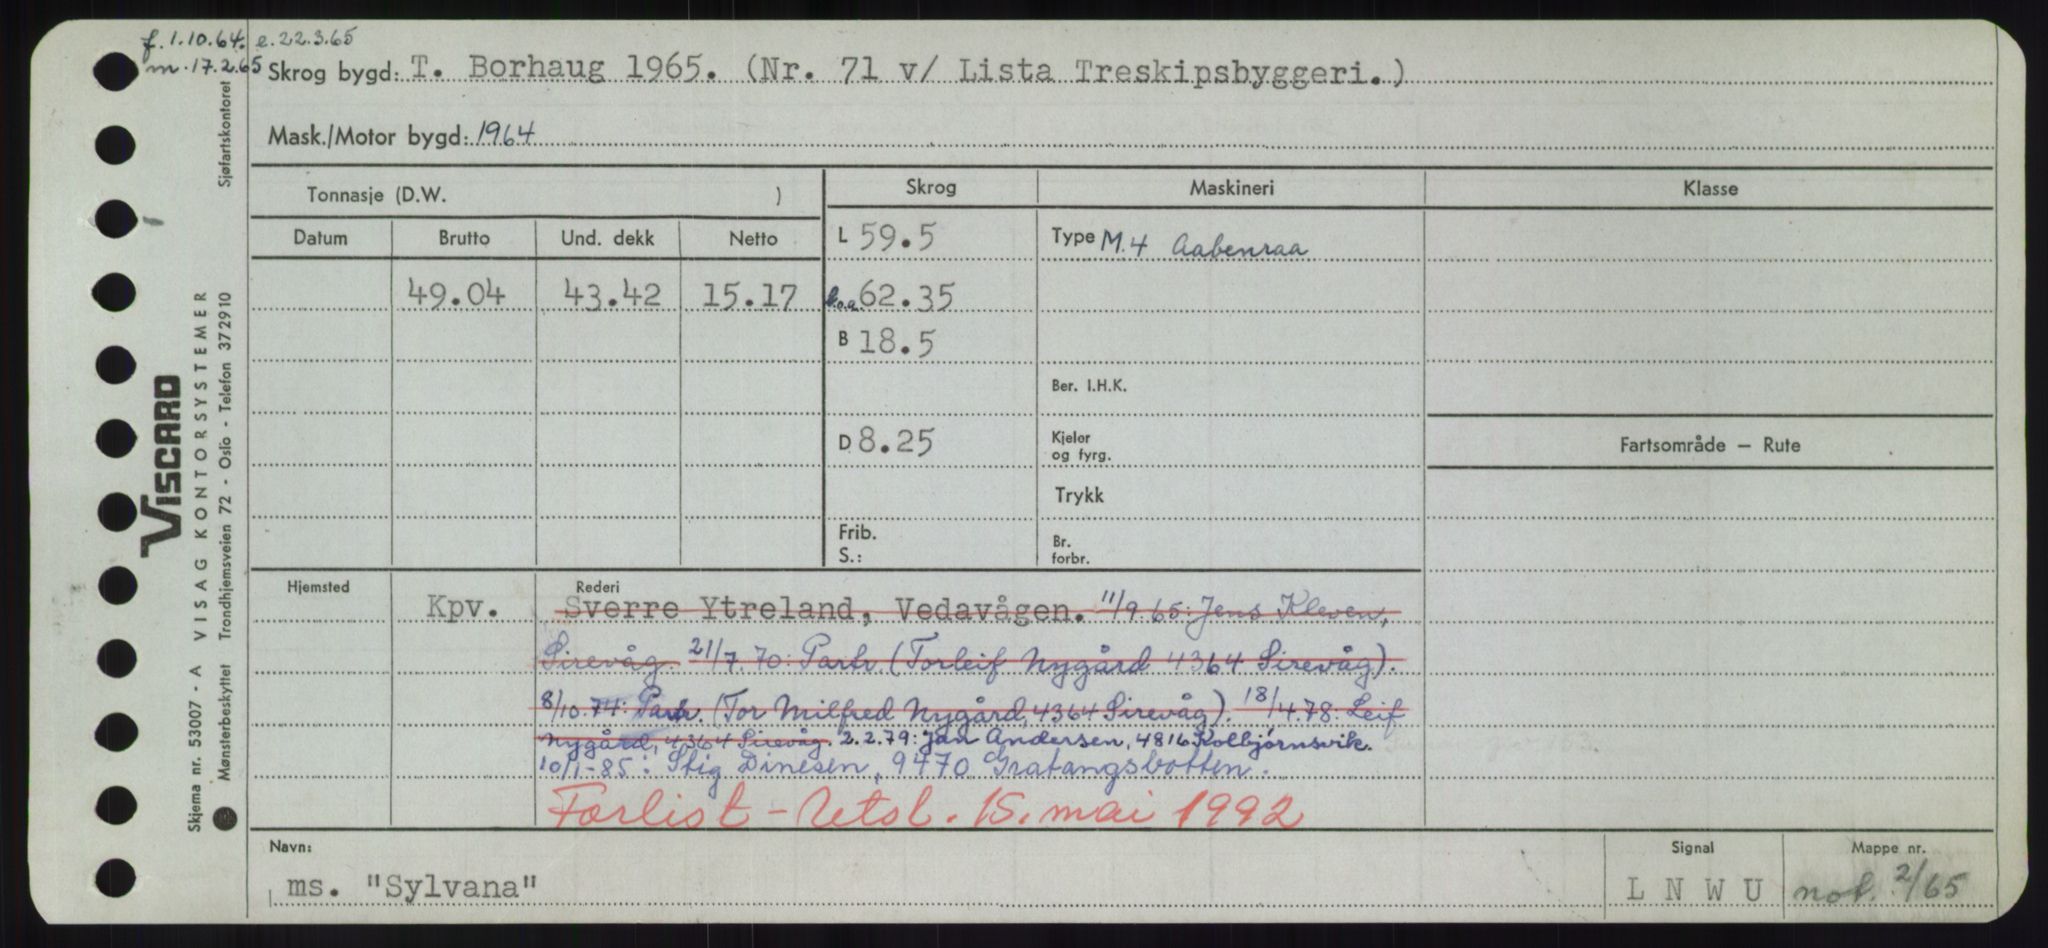 f. 1.10.64. e. 22.3.65
m. 17.2.65
Skrog bygd: T. Borhaug 1965. (Nr. 71 v/ Lista Treskipsbyggeri.)
Mask./Motor bygd: 1964
Tonnasje (D.W. )
Skrog
Maskineri
Klasse
Datum
Brutto
Und. dekk
Netto
L 59.5
Type M.4 Aabenraa
49.04
43.42
15.17
l.o.a. 62.35
B 18.5
Ber. I.H.K.
D 8.25
Kjeler
og fyrg.
Fartsområde — Rute
Trykk
Frib.
S.:
Br.
forbr.
Hjemsted
Rederi
Kpv.
Sverre Ytreland, Vedavågen. 11/9.65: Jens Kleven,
Sirevåg. 21/7.70: Partr. (Torleif Nygård 4364 Sirevåg).
8/10.74: Partr. (Tor Milfred Nygård, 4364 Sirevåg). 18/4.78: Leif
Nygård, 4364 Sirevåg. 2.2.79: Jan Andersen, 4816 Kolbjørnsvik.
10/1-85: Stig Dinesen, 9470 Gratangsbotten.
Forlist - Utsl. 15. mai 1992
Navn:
ms. "Sylvana"
Signal
L N W U
Mappe nr.
not. 2/65
VISCARD
Skjema nr. 53007 - A VISAG KONTORSYSTEMER
Mønsterbeskyttet Trondhjemsveien 72 - Oslo - Telefon 372910
Sjøfartskontoret